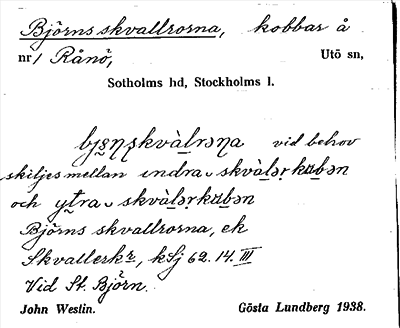 Björns skvallrorna, kobbar å
nr 1 Rånö, Utö sn,
Sotholms hd, Stockholms l.
bjs̱ņʂkvàḻrəṉa vid behov
skiljes mellan indra skvàḻəṛkɷḇən
och yṯra skvàḻəṛkɷḇən
Björns skvallrorna, ek
Skvallerkr, kSj 62. 14. III
Vid St. Björn.
John Westin. Gösta Lundberg 1938.